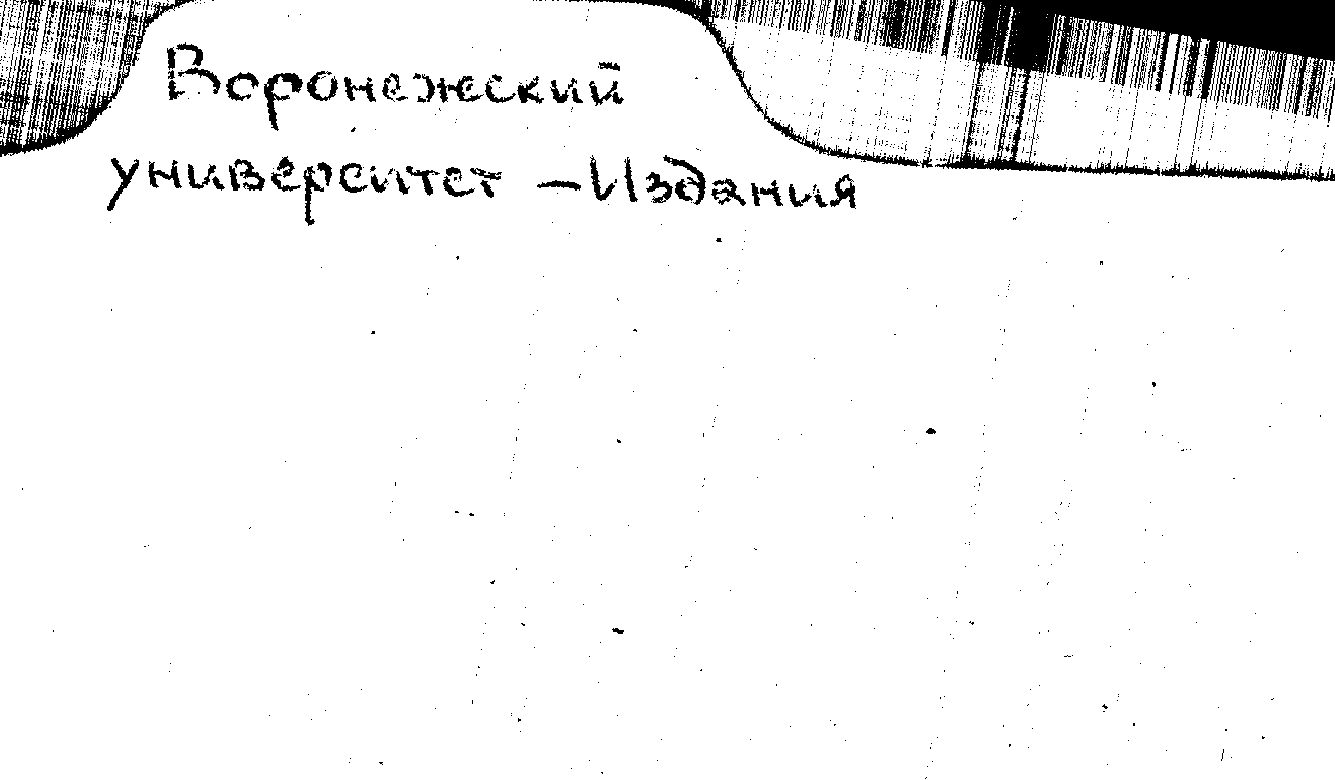 Воронежский
университет – Издания